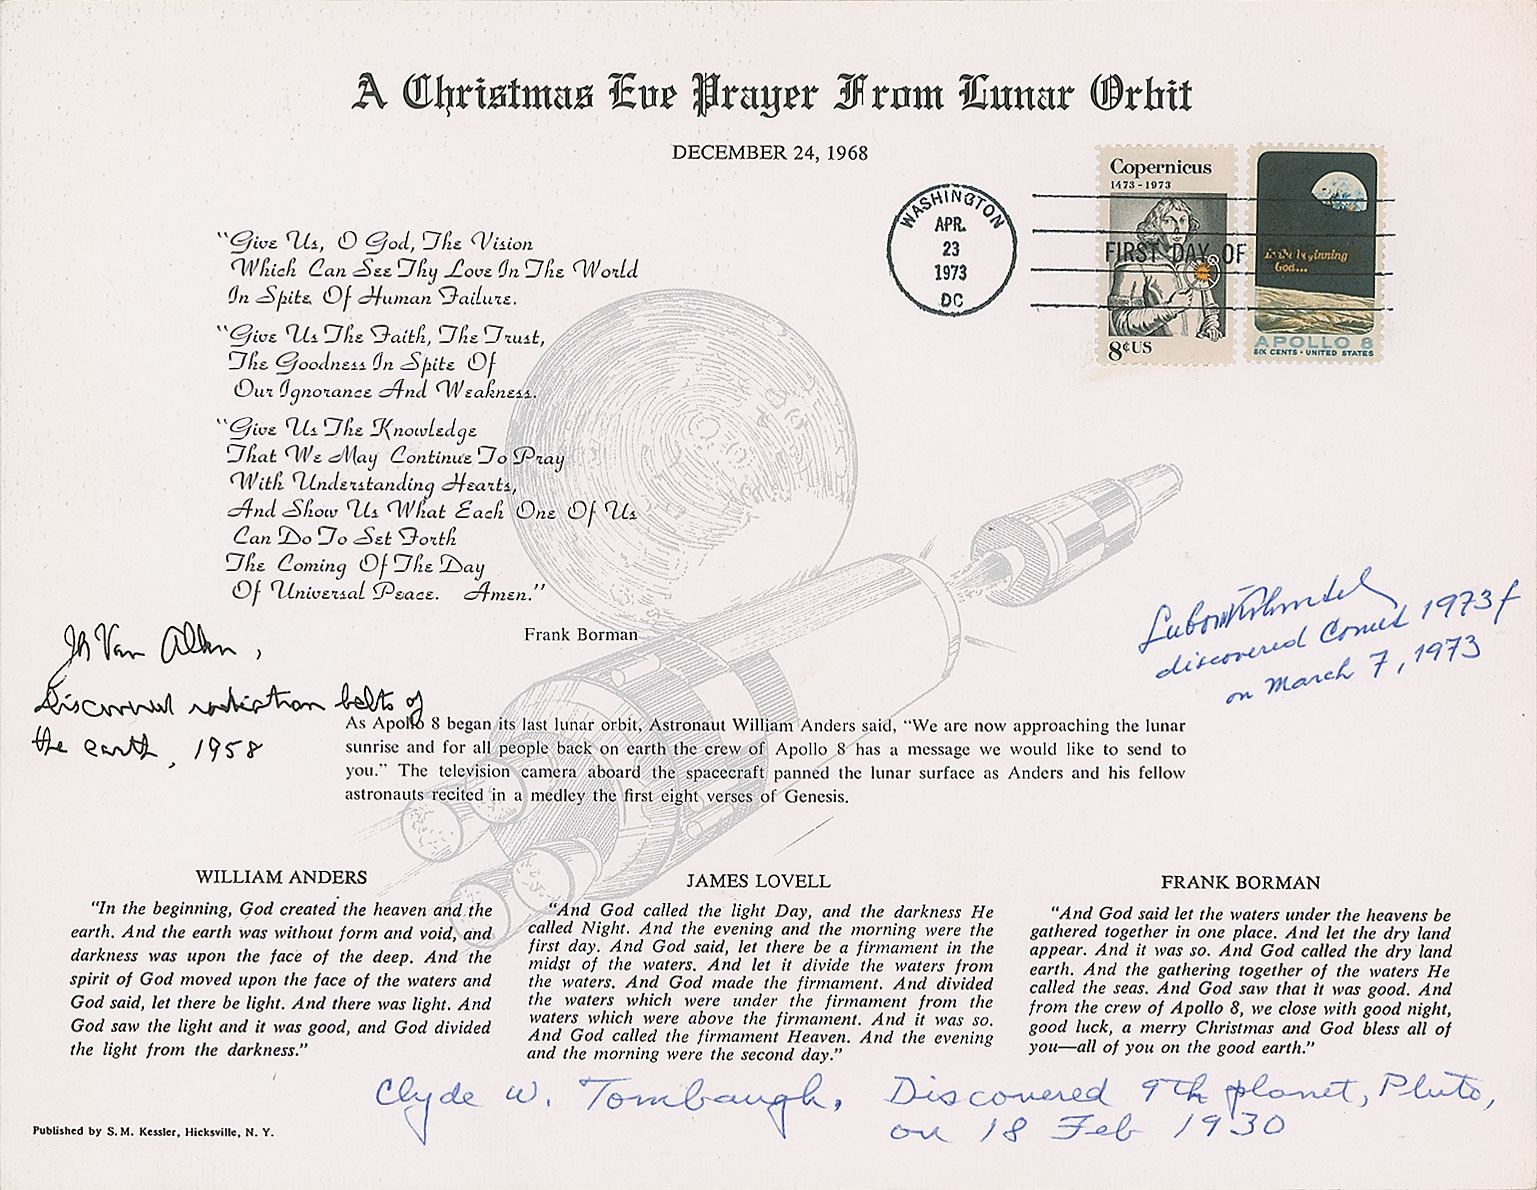 A Christmas Eve Prayer From Lunar Orbit
DECEMBER 24, 1968
WASHINGTON
APR.
23
1973
DC
Copernicus
1473-1973
FIRST DAY OF
8¢US
In the beginning
God...
APOLLO 8
SIX CENTS · UNITED STATES
"Give Us, O God, The Vision
Which Can See Thy Love In The World
In Spite Of Human Failure.
"Give Us The Faith, The Trust,
The Goodness In Spite Of
Our Ignorance And Weakness.
"Give Us The Knowledge
That We May Continue To Pray
With Understanding Hearts,
And Show Us What Each One Of Us
Can Do To Set Forth
The Coming Of The Day
Of Universal Peace. Amen."
Frank Borman
Van Allen,
Discovered radiation belts of
the earth, 1958
discovered Comet 1973f
on March 7, 1973
As Apollo 8 began its last lunar orbit, Astronaut William Anders said, "We are now approaching the lunar
sunrise and for all people back on earth the crew of Apollo 8 has a message we would like to send to
you." The television camera aboard the spacecraft panned the lunar surface as Anders and his fellow
astronauts recited in a medley the first eight verses of Genesis.
WILLIAM ANDERS
"In the beginning, God created the heaven and the
earth. And the earth was without form and void, and
darkness was upon the face of the deep. And the
spirit of God moved upon the face of the waters and
God said, let there be light. And there was light. And
God saw the light and it was good, and God divided
the light from the darkness."
JAMES LOVELL
"And God called the light Day, and the darkness He
called Night. And the evening and the morning were the
first day. And God said, let there be a firmament in the
midst of the waters. And let it divide the waters from
the waters. And God made the firmament. And divided
the waters which were under the firmament from the
waters which were above the firmament. And it was so.
And God called the firmament Heaven. And the evening
and the morning were the second day."
FRANK BORMAN
"And God said let the waters under the heavens be
gathered together in one place. And let the dry land
appear. And it was so. And God called the dry land
earth. And the gathering together of the waters He
called the seas. And God saw that it was good. And
from the crew of Apollo 8, we close with good night,
good luck, a merry Christmas and God bless all of
you—all of you on the good earth."
Clyde W. Tombaugh, Discovered 9th planet, Pluto,
on 18 Feb 1930
Published by S. M. Kessler, Hicksville, N. Y.